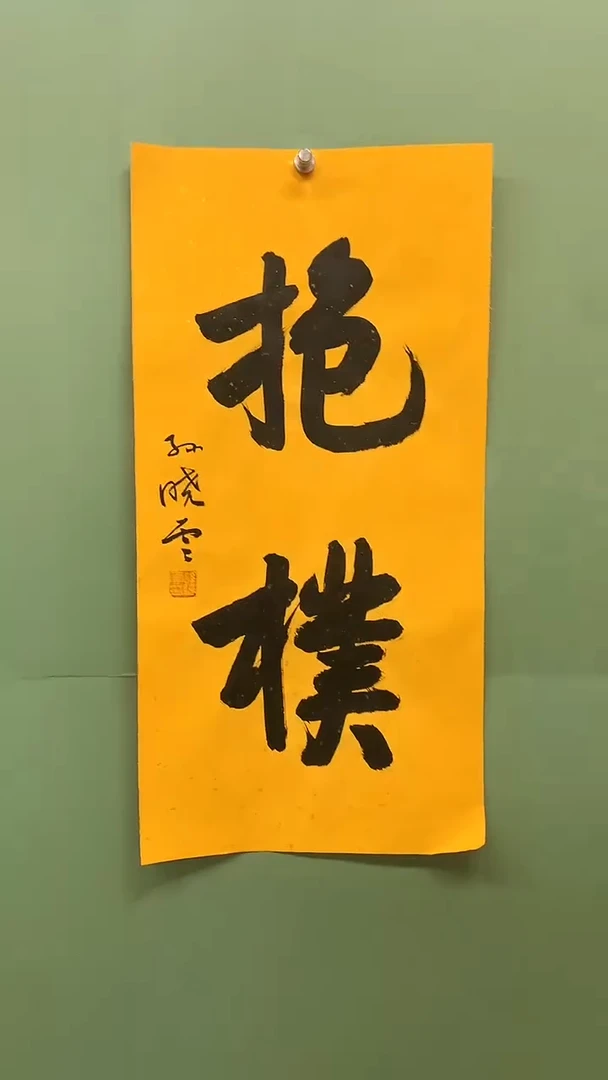 抱樸
孙晓雲